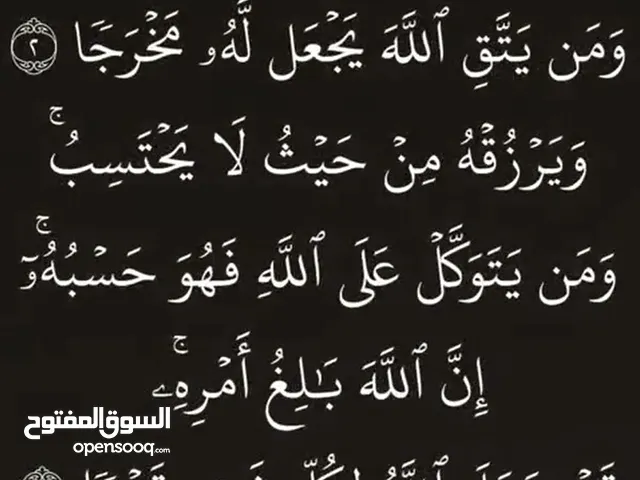 وَمَن يَتَّقِ ٱللَّهَ يَجْعَل لَّهُۥ مَخْرَجًا ٢
وَيَرْزُقْهُ مِنْ حَيْثُ لَا يَحْتَسِبُ ۚ
وَمَن يَتَوَكَّلْ عَلَى ٱللَّهِ فَهُوَ حَسْبُهُۥٓ ۚ
إِنَّ ٱللَّهَ بَـٰلِغُ أَمْرِهِۦ ۚ
السوق المفتوح
opensooq.com